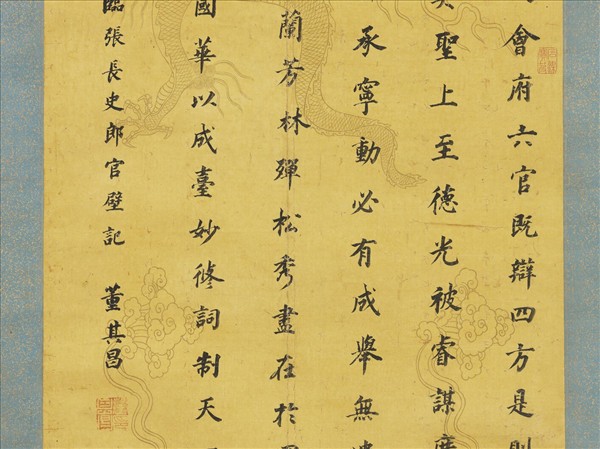 會府六官既辯四方是則
聖上至德光被睿謀
承寧動必有成舉無
蘭芳林殫松秀盡在於
國華以成臺妙修詞制天
臨張長史郎官壁記
董其昌